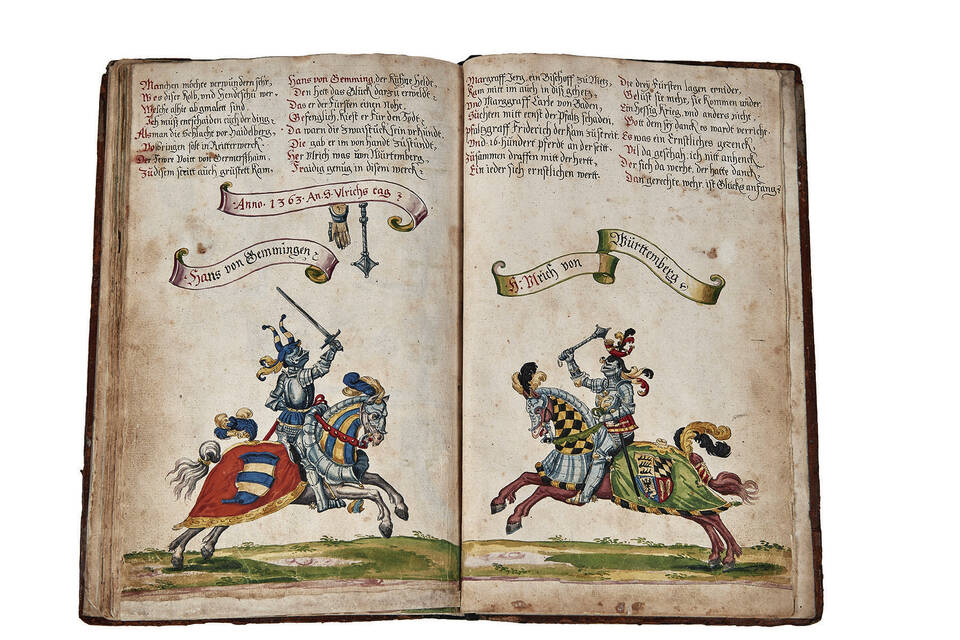 Manchen möchte verwundern sehr,
Wes diser Kolb, und Hendschů wer.
Welche alhie abgmalet sind.
Ich můst entschaid euch der ding
Als man die Schlacht vor Haidelberg,
Volbringen solt in Reitterwerck
Der Jever Voitt von Germerßhaim,
Zů disem streitt auch grüstett kam.
Hans von Gemming, der Kühne Heldt,
Den hett das Glück darzů erwöldt
Das er der Fürsten einen Nöht,
Gefenglich, Kiest er für den Todt.
Da warn die Zwai stück sein urkůndt,
Die gab er im von handt Zůstůndt,
Herr Ulrich was von Würtemberg,
Fraidig genůg in disem werck
Margraff Jerg, ein Bischoff zů Metz,
Kam mitt im auch in diß gehetz,
Und Marggraff Carle von Baden,
Sůchten mitt ernst der Pfaltz schaden,
Pfaltzgraff Friderich der Kam Zů streit
Und 16 hundert pferde an der seitt.
Zůsammen draffen mitt der hertt,
Ein ieder sich ernstlichen wertt.
Die drey Fürsten lagen ernider,
Gelüst sie mehr, sie Kommen wider.
Ein hessig Krieg, und anders nicht,
Gott dem sey danck es wardt verricht.
Es was ein Ernstliches gezenck,
Vil da geschah, ich nitt anhenck
Der sich da werhe, der hatte danck,
Dan gerechte wehr, ist Glücks anfang
Anno · 1363 · An · S · Ulrichs tag
Hans von Gemmingen
H: Ulrich von Württemberg